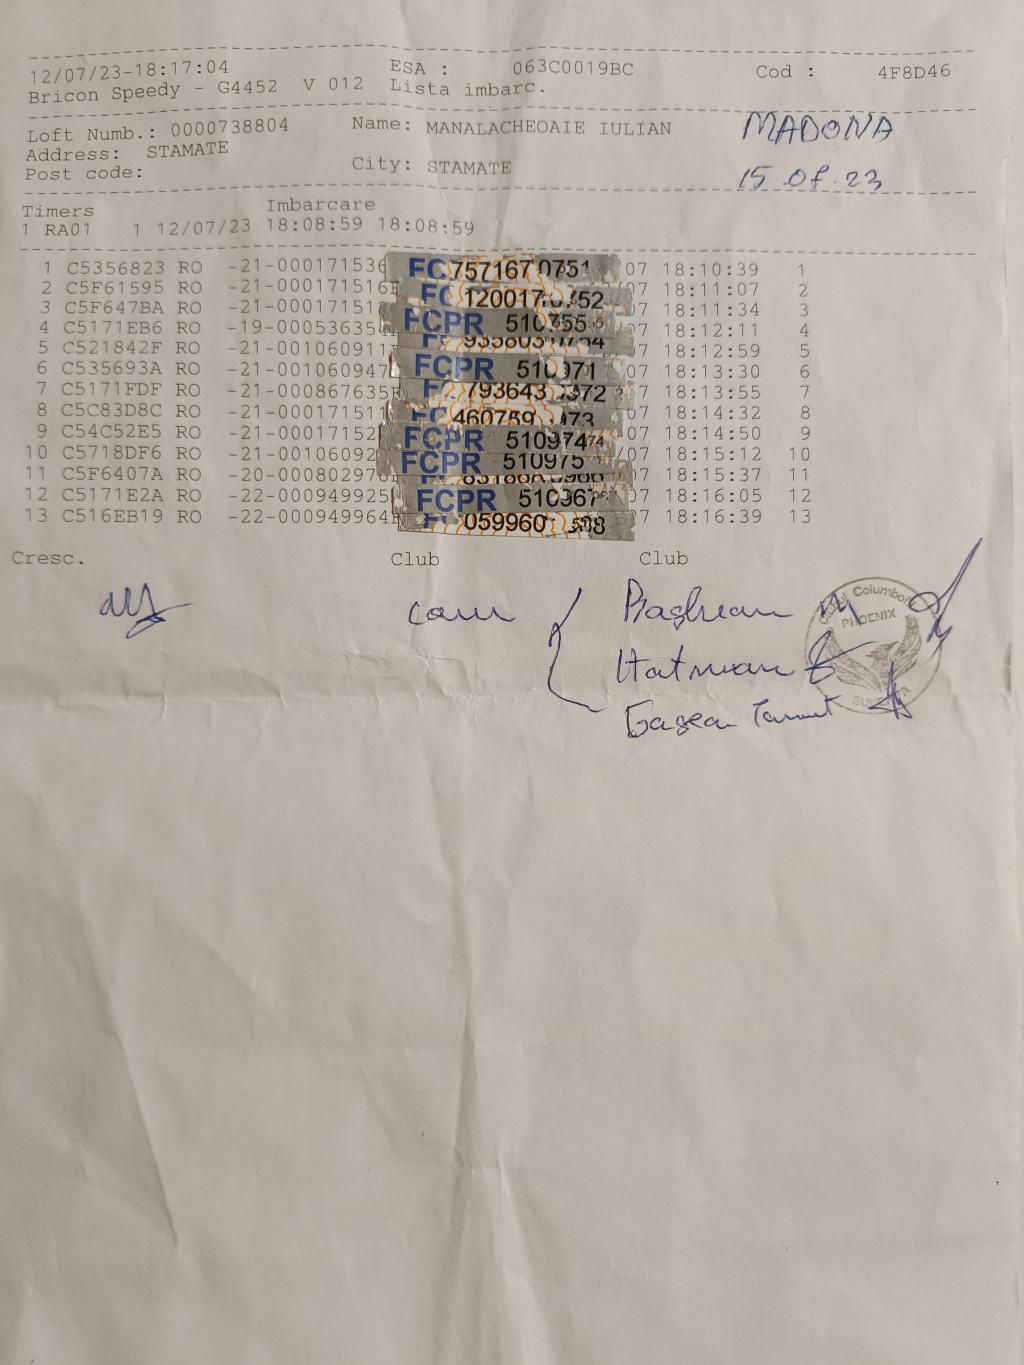 12/07/23-18:17:04 ESA : 063C0019BC Cod : 4F8D46
Bricon Speedy - G4452 V 012 Lista imbarc.
Loft Numb.: 0000738804 Name: MANALACHEOAIE IULIAN MADONA
Address: STAMATE
Post code: City: STAMATE 15.07.23
Timers Imbarcare
1 RA01 1 12/07/23 18:08:59 18:08:59
1 C5356823 RO -21-000171536 FC 757167 0751 07 18:10:39 1
2 C5F61595 RO -21-000171516 FC 120017 752 07 18:11:07 2
3 C5F647BA RO -21-00017151 FCPR 510755 07 18:11:34 3
4 C5171EB6 RO -19-000536354 07 18:12:11 4
5 C521842F RO -21-001060911 FCPR 510971 07 18:12:59 5
6 C535693A RO -21-001060947 07 18:13:30 6
7 C5171FDF RO -21-000867635 793643 0372 07 18:13:55 7
8 C5C83D8C RO -21-000171511 FC 460759 973 07 18:14:32 8
9 C54C52E5 RO -21-00017152 FCPR 510974 07 18:14:50 9
10 C5718DF6 RO -21-00106092 FCPR 510975 07 18:15:12 10
11 C5F6407A RO -20-000802970 07 18:15:37 11
12 C5171E2A RO -22-000949925 FCPR 510967 07 18:16:05 12
13 C516EB19 RO -22-000949964 059960 508 07 18:16:39 13
Cresc. Club Club
PHOENIX